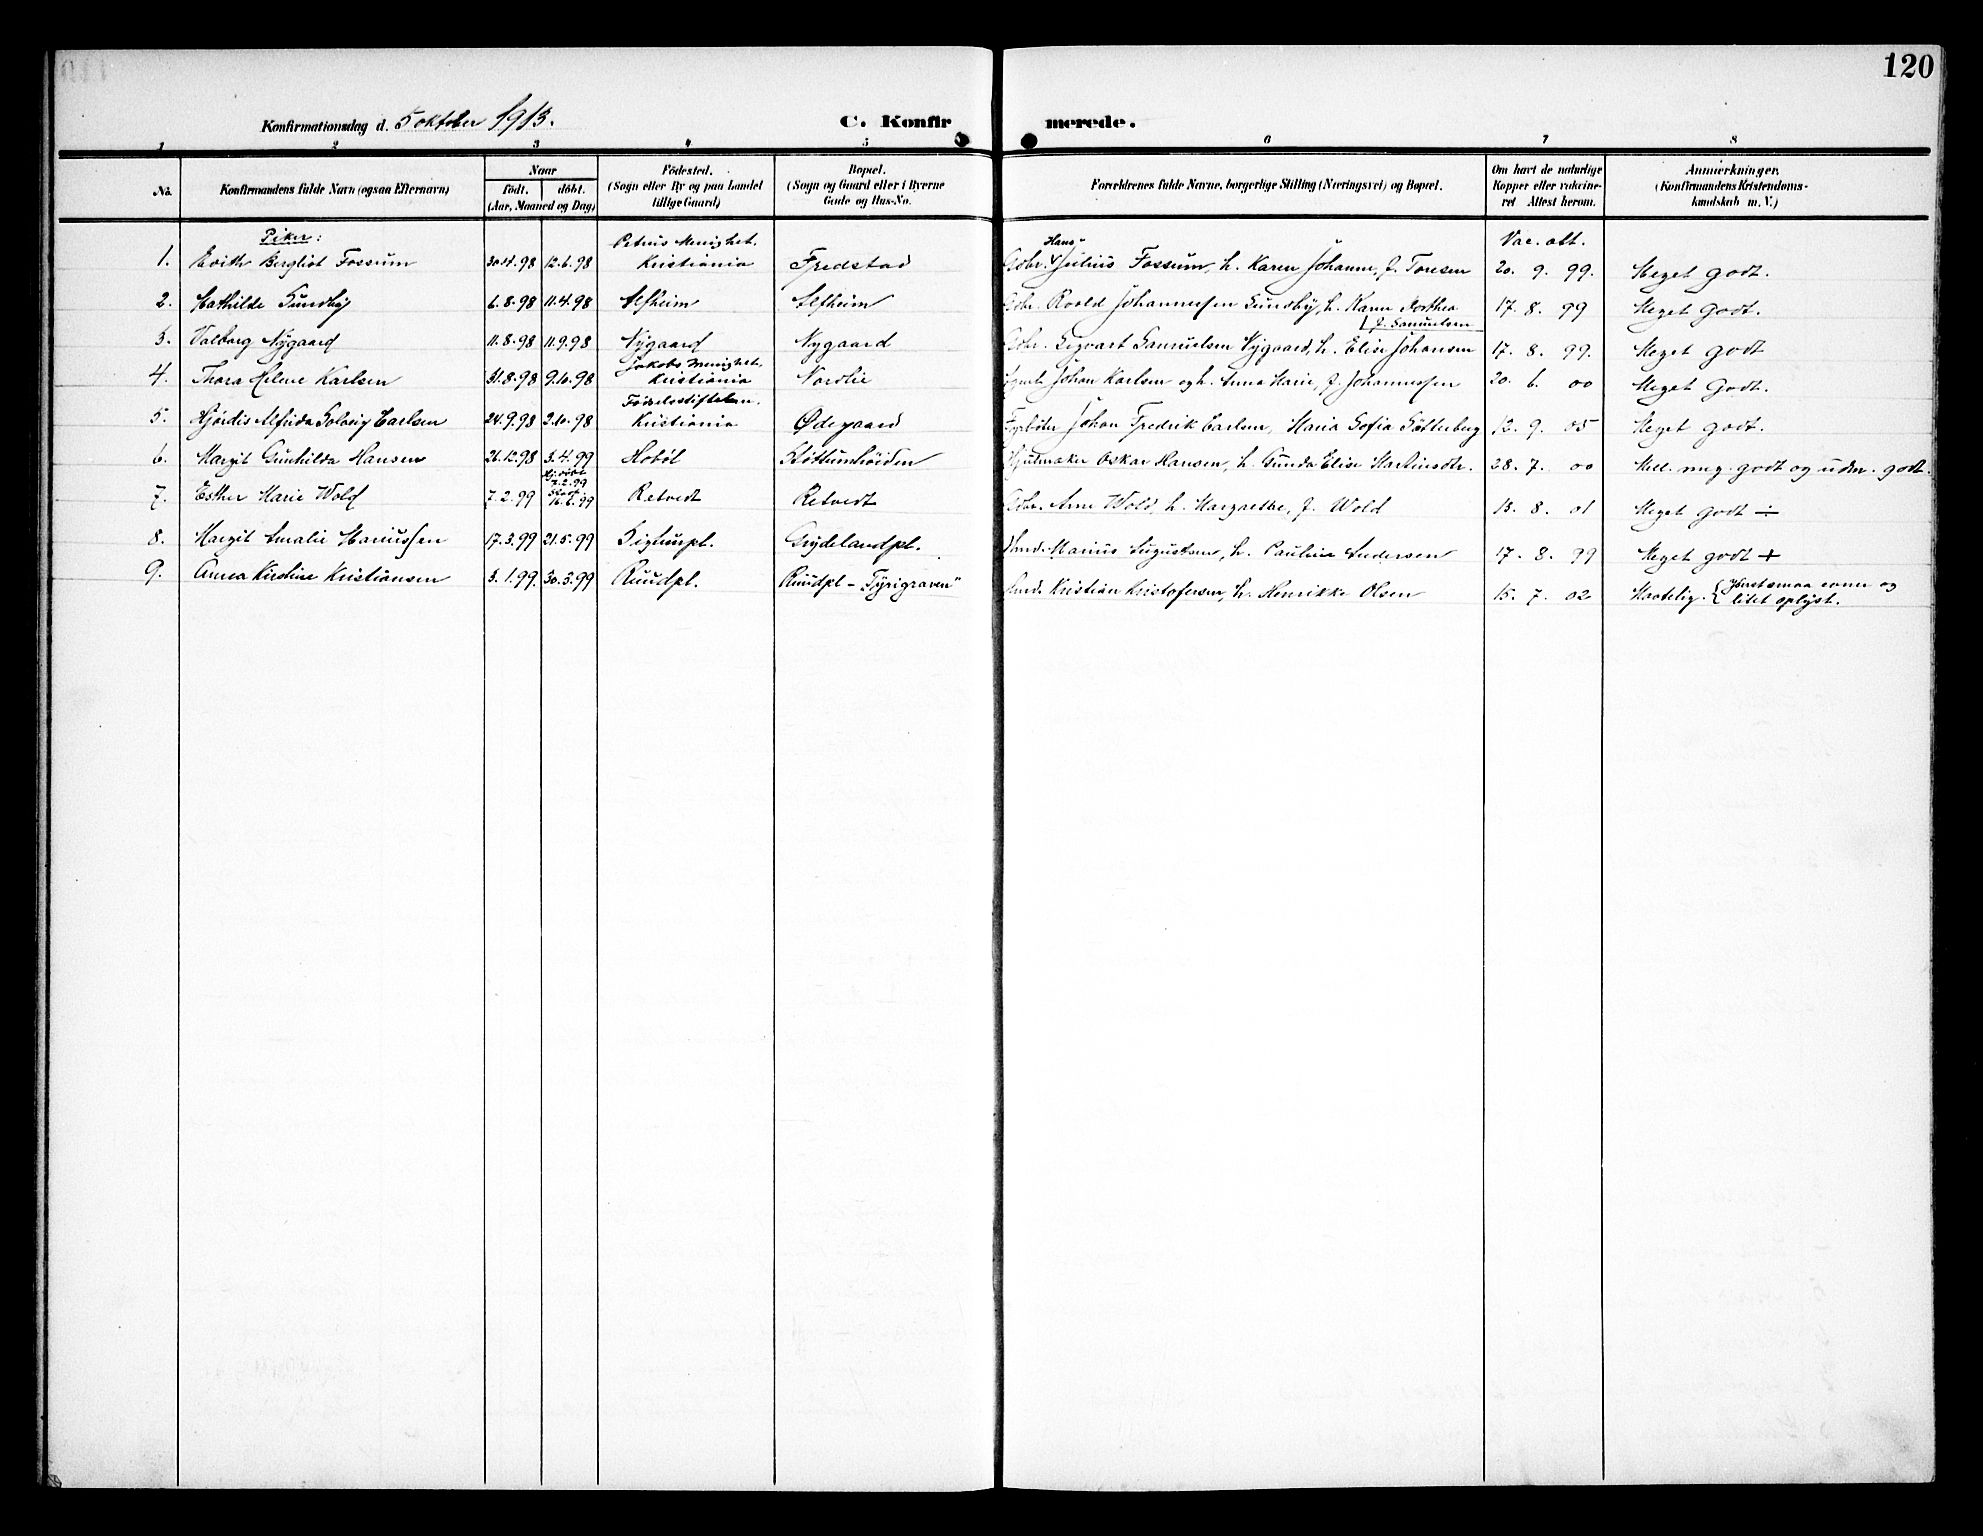 120
Konfirmationsdag d. 5 oktober 1913. C. Konfirmerede.
1 2 3 4 5 6 7 8
No. Konfirmandens fulde Navn (ogsaa Efternavn) Naar født. døbt. (Aar, Maaned og Dag) Födested. (Sogn eller By og paa Landet tillige Gaard) Bopæl. (Sogn og Gaard eller i Byerne Gade og Hus-No. Forældrenes fulde Navne, borgerlige Stilling (Næringsvei) og Bopæl. Om havt de naturlige Kopper eller vaccineret Attest herom. Anmærkninger. (Konfirmandens Kristendomskundskab m. V.)
Piker: Petrus Menighet. Hans Vac. att.
1. Edith Bergliot Fossum 30.4.98 12.6.98 Kristiania Fredstad Gdbr. Julius Fossum, h. Karen Johanne, f. Toresen 20. 9. 99. Meget godt.
2. Mathilde Sundby 6.8.98 11.4.98 Alfheim Alfheim Gdbr. Roald Johannessen Sundby, h. Karen Dorthea 17. 8. 99 Meget godt.
f. Samuelsen
3. Valborg Nygaard 11.8.98 11.9.98 Nygaard Nygaard Gdbr. Segvart Samuelsen Nygaard, h. Elise Johansen 17. 8. 99. Meget godt
Jakobs Menighet,
4. Thora Helene Karlsen 31.8.98 9.10.98 Kristiania Nordlie Johan Karlsen og h. Anna Marie, f. Johannessen 20. 6. 00 Meget Godt.
Fødselsstiftelsen.
5. Hjørdis Alfrida Solveig Carlsen 24.9.98 2.10.98 Kristiania Ødegaard Johan Fredrik Carlsen, Maria Sofia Sätterberg 12. 9. 05 Meget godt.
6. Margit Gunhilda Hansen 26.12.98 3.4.99 Hobøl Hjulmaker Oskar Hansen, h. Gunda Elise Martinsdtr. 28. 7. 00 Mell. meg. godt og uden. godt.
Hj.døbt 7.2.99
7. Esther Marie Wold 7.2.99 16.7.99 Retvedt Retvedt Gdbr. Arne Wold, h. Margrethe, f. Wold 13. 8. 01 Meget godt ÷
8. Margit Amalie Mariussen 17.3.99 21.5.99 Grydelandpl. Marius Augustsen, h. Pauline Andersen 17. 8. 99 Meget godt +
9. Anna Kirstine Kristiansen 3.1.99. 30.3.99 Ruudpl. Ruudpl - "Tyrigraven" Kristian Kristofersen, h. Henrikke Olsen 15. 7. 02 Maatelig. { smaa evner og
litet oplyst.